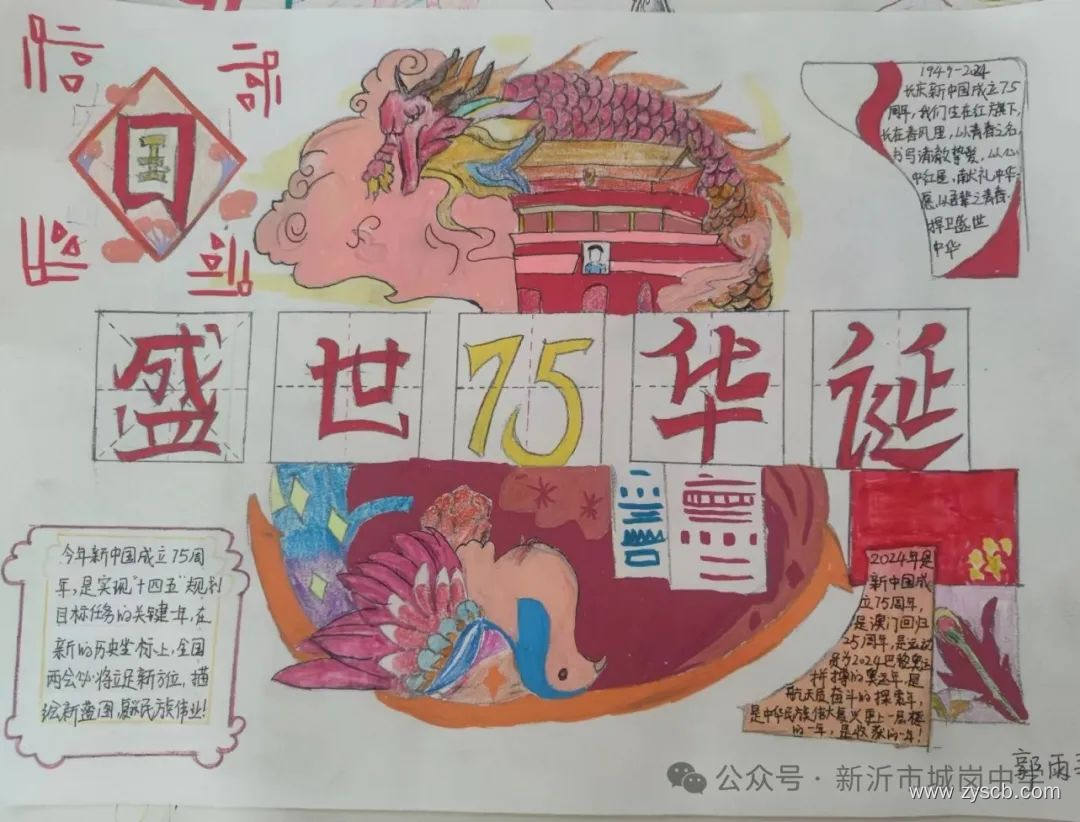 国
1949-2024
长庆新中国成立75
周年,我们生在红旗下,
长在春风里,以青春之名,
书写清澈挚爱,以心
中红星,献礼中华
愿,以吾辈之青春
捍卫盛世
中华
盛世75华诞
今年新中国成立75周
年,是实现"十四五"规划
目标任务的关键一年,在
新的历史坐标上,全国
两会必将立足新方位,描
绘新蓝图,民族伟业!
2024年是
新中国成
立75周年,
是澳门回归
25周年,是运动
员为2024巴黎奥运
拼搏的奥运年,是
航天员奋斗的探索年,
是中华民族伟大复兴更上一层楼
的一年,是收获的一年!
郭雨
公众号·新沂市城岗中学
www.zyscb.com